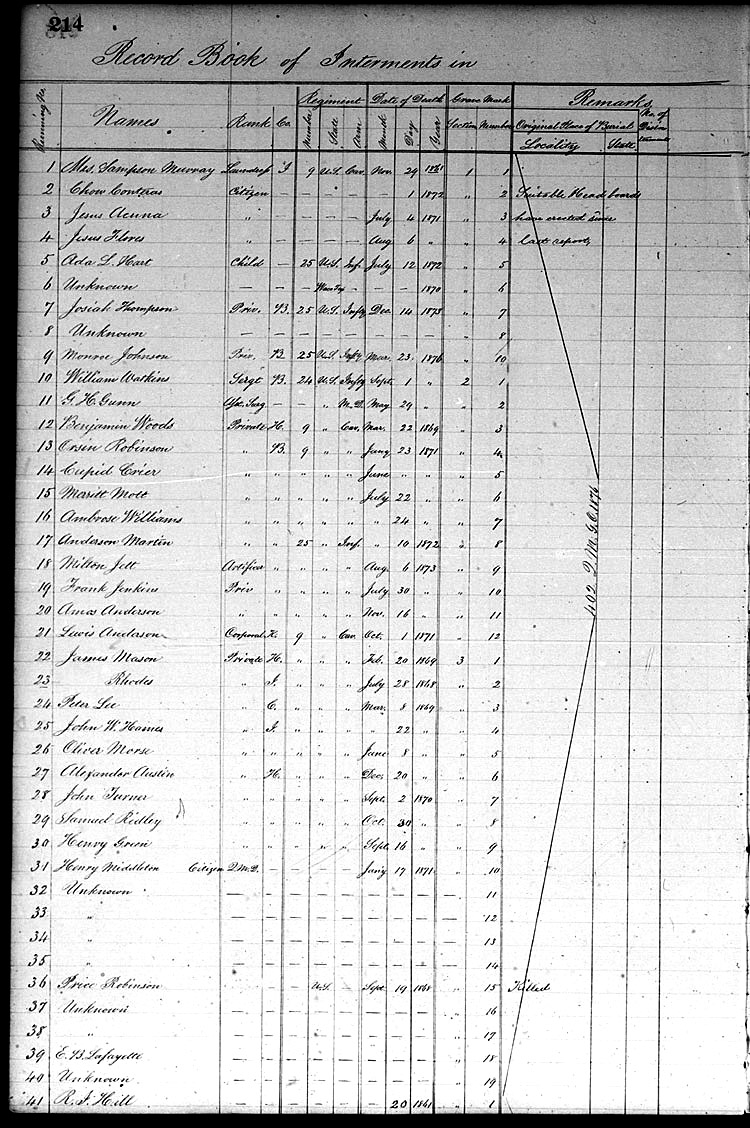 214
Record Book of Interments in
Running No. Names Rank Co. Regiment Date of Death Grave Mark Remarks
Number State Arm Month Day Year Section Number Original Place of Burial No. of Disinterments
Locality State
1 Mrs. Sampson Murray Laundress I 9 U.S. Cav. Nov. 29 1 1
2 Chon Contras Citizen — — — — — 1 1872 " 2 Suitable Headboards
3 Jesus Acuna " — — — — July 4 1871 " 3 have erected since
4 Jesus Flores " — — — — Aug 6 " " 4 last report
5 Ada L. Hart Child — 25 U.S. Inf. July 12 1872 " 5
6 Unknown — — — — 1870 " 6
7 Josiah Thompson Priv. B. 25 U.S. Infty Dec. 14 1873 " 7
8 Unknown — — — — — — — — " 8
9 Monroe Johnson Priv. B 25 U.S. Infty Mar. 23 1876 " 10
10 William Watkins Sergt B. 24 U.S. Infty Sept. 1 " 2 1
11 G. H. Gunn — — " M.D. May 29 " " 2
12 Benjamin Woods Private H. 9 " Cav. Mar. 22 1869 " 3
13 Orsin Robinson " B. 9 " " Jany 23 1871 " 4
14 Cupid Crier " " " " " June " " 5
15 Merritt Mott " " " " " July 22 " " 6
16 Ambrose Williams " " " " " " 24 " " 7
17 Anderson Martin " " 25 " Inf. " 10 1872 " 8
18 Milton Jett Artificer " " " " Aug. 6 1873 " 9
19 Frank Jenkins Priv " " " " July 30 " " 10
20 Amos Anderson " " " " " Nov. 16 " " 11
21 Lewis Andason Corporal K. 9 " Cav. Oct. 1 1871 " 12
22 James Mason Private H. " " " Feb. 20 1869 3 1
23 Rhodes " I. " " " July 28 1868 " 2
24 Peter Lee " C. " " " Mar. 8 1869 " 3
25 John W. Hames " I. " " " " 22 " " 4
26 Oliver Morse " " " " " June 8 " " 5
27 Alexander Austin " H. " " " Dec. 20 " " 6
28 John Turner " " " " " Sept. 2 1870 " 7
29 Samuel Ridley " " " " " Oct. 30 " " 8
30 Henry Green " " " " " Sept. 16 " " 9
31 Henry Middleton Citizen Q.M.D. — — — — Jany 17 1871 " 10
32 Unknown — — — — — — — — — 11
33 " — — — — — — — — — 12
34 " — — — — — — — — — 13
35 " — — — — — — — — — 14
36 Price Robinson U.S. Sept 19 1868 " 15 Killed
37 Unknown — — — — — — — — " 16
38 " — — — — — — — — " 17
39 E. B. Lafayette — — — — — — — — " 18
40 Unknown — — — — — — — — " 19
41 R. J. Hill — — — — — — 20 1861 " 1
402 Q.M.G.O. 1876